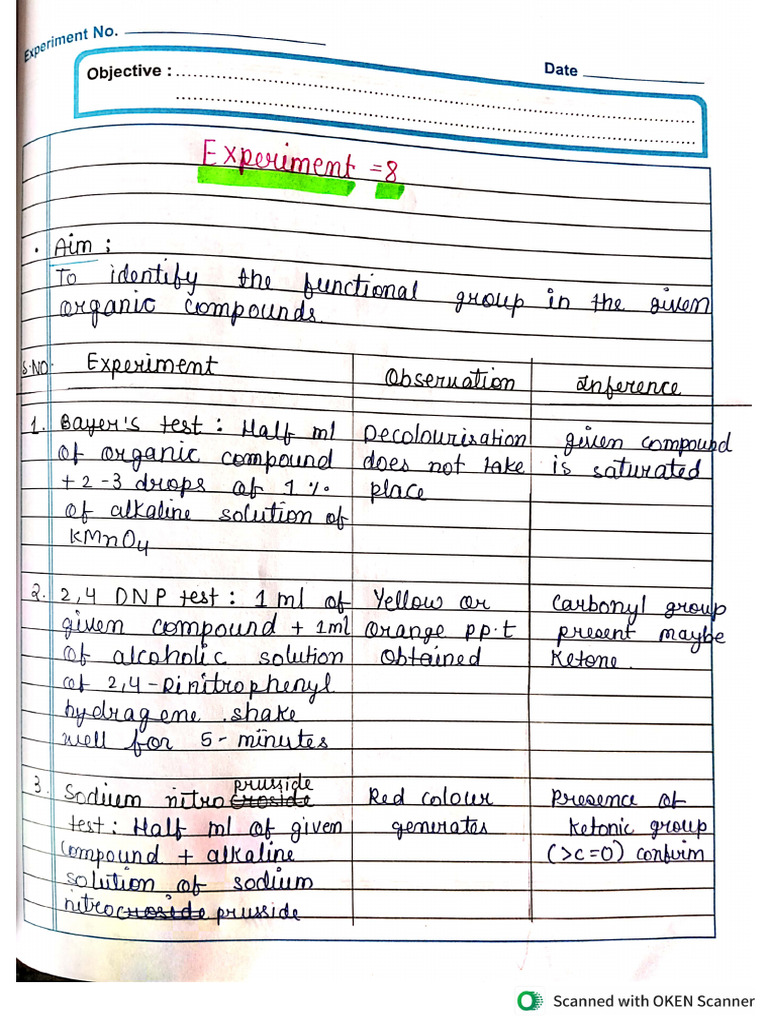 Experiment No.
Date
Objective :
Experiment = 8
• Aim :
To identify the functional group in the given
organic compounds.
S.NO. Experiment Observation Inference
1. Bayer's test : Half ml Decolourisation given compound
of organic compound does not take is saturated
+ 2-3 drops of 1% place
of alkaline solution of
KMnO4
2. 2,4 DNP test : 1 ml of Yellow or Carbonyl group
given compound + 1ml orange pp.t present maybe
of alcoholic solution obtained ketone.
of 2,4-Dinitrophenyl
hydragene . shake
well for 5-minutes
3. Sodium nitro prusside Red colour Presence of
test : Half ml of given generates ketonic group
compound + alkaline (>C=O) confirm
solution of sodium
nitro prusside
Scanned with OKEN Scanner